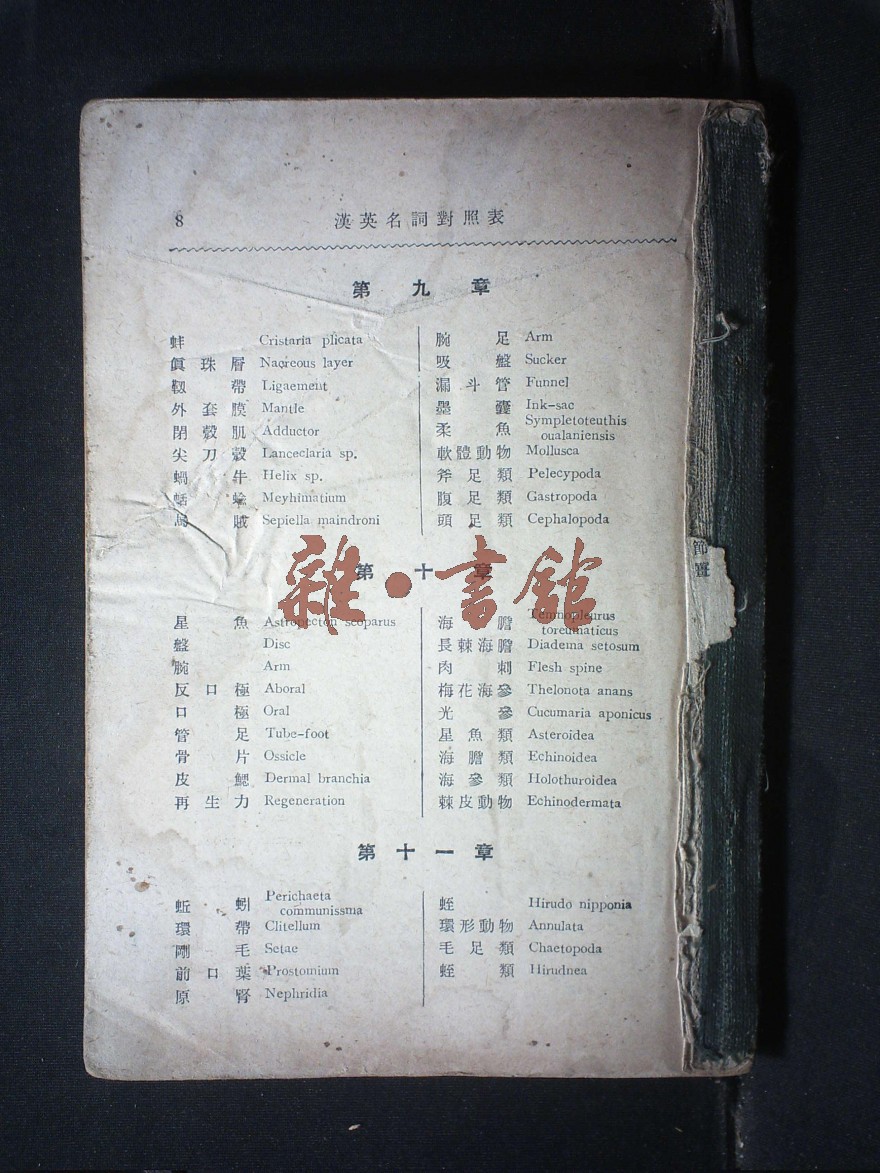 8 漢英名詞對照表
第九章
蚌 Cristaria plicata
眞珠層 Nacreous layer
靱帶 Ligaement
外套膜 Mantle
閉殼肌 Adductor
尖刀殼 Lanceclaria sp.
蝸牛 Helix sp.
蛞蝓 Meyhimatium
烏賊 Sepiella maindroni
腕足 Arm
吸盤 Sucker
漏斗管 Funnel
墨囊 Ink-sac
柔魚 Sympletoteuthis
oualaniensis
軟體動物 Mollusca
斧足類 Pelecypoda
腹足類 Gastropoda
頭足類 Cephalopoda
第十章
雜·書館
星魚 Astropecton scoparus
盤 Disc
腕 Arm
反口極 Aboral
口極 Oral
管足 Tube-foot
骨片 Ossicle
皮鰓 Dermal branchia
再生力 Regeneration
海膽 Temnopleurus
toreumaticus
長棘海膽 Diadema setosum
肉刺 Flesh spine
梅花海參 Thelonota anans
光參 Cucumaria aponicus
星魚類 Asteroidea
海膽類 Echinoidea
海參類 Holothuroidea
棘皮動物 Echinodermata
第十一章
蚯蚓 Perichaeta
communissma
環帶 Clitellum
剛毛 Setae
前口葉 Prostomium
原腎 Nephridia
蛭 Hirudo nipponia
環形動物 Annulata
毛足類 Chaetopoda
蛭類 Hirudnea